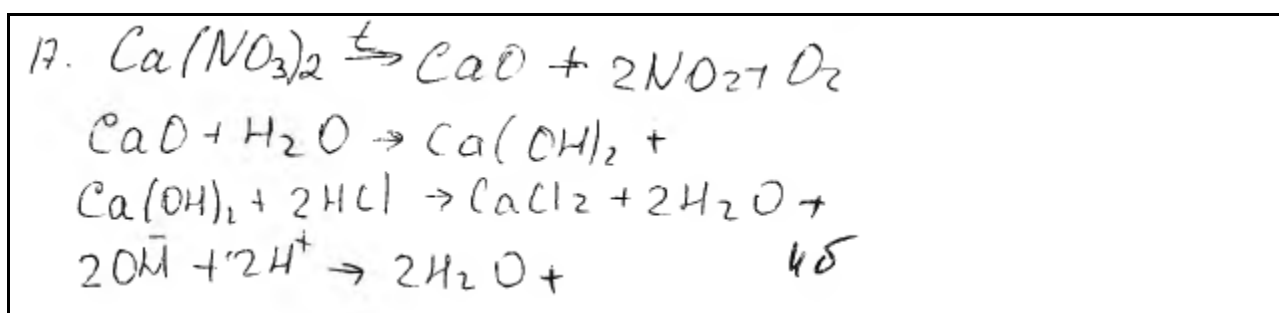 17. Ca(NO3)2 t→ CaO + 2NO2+ O2
CaO + H2O → Ca(OH)2 +
Ca(OH)2 + 2HCl → CaCl2 + 2H2O +
2OH⁻ + 2H⁺ → 2H2O +
4б